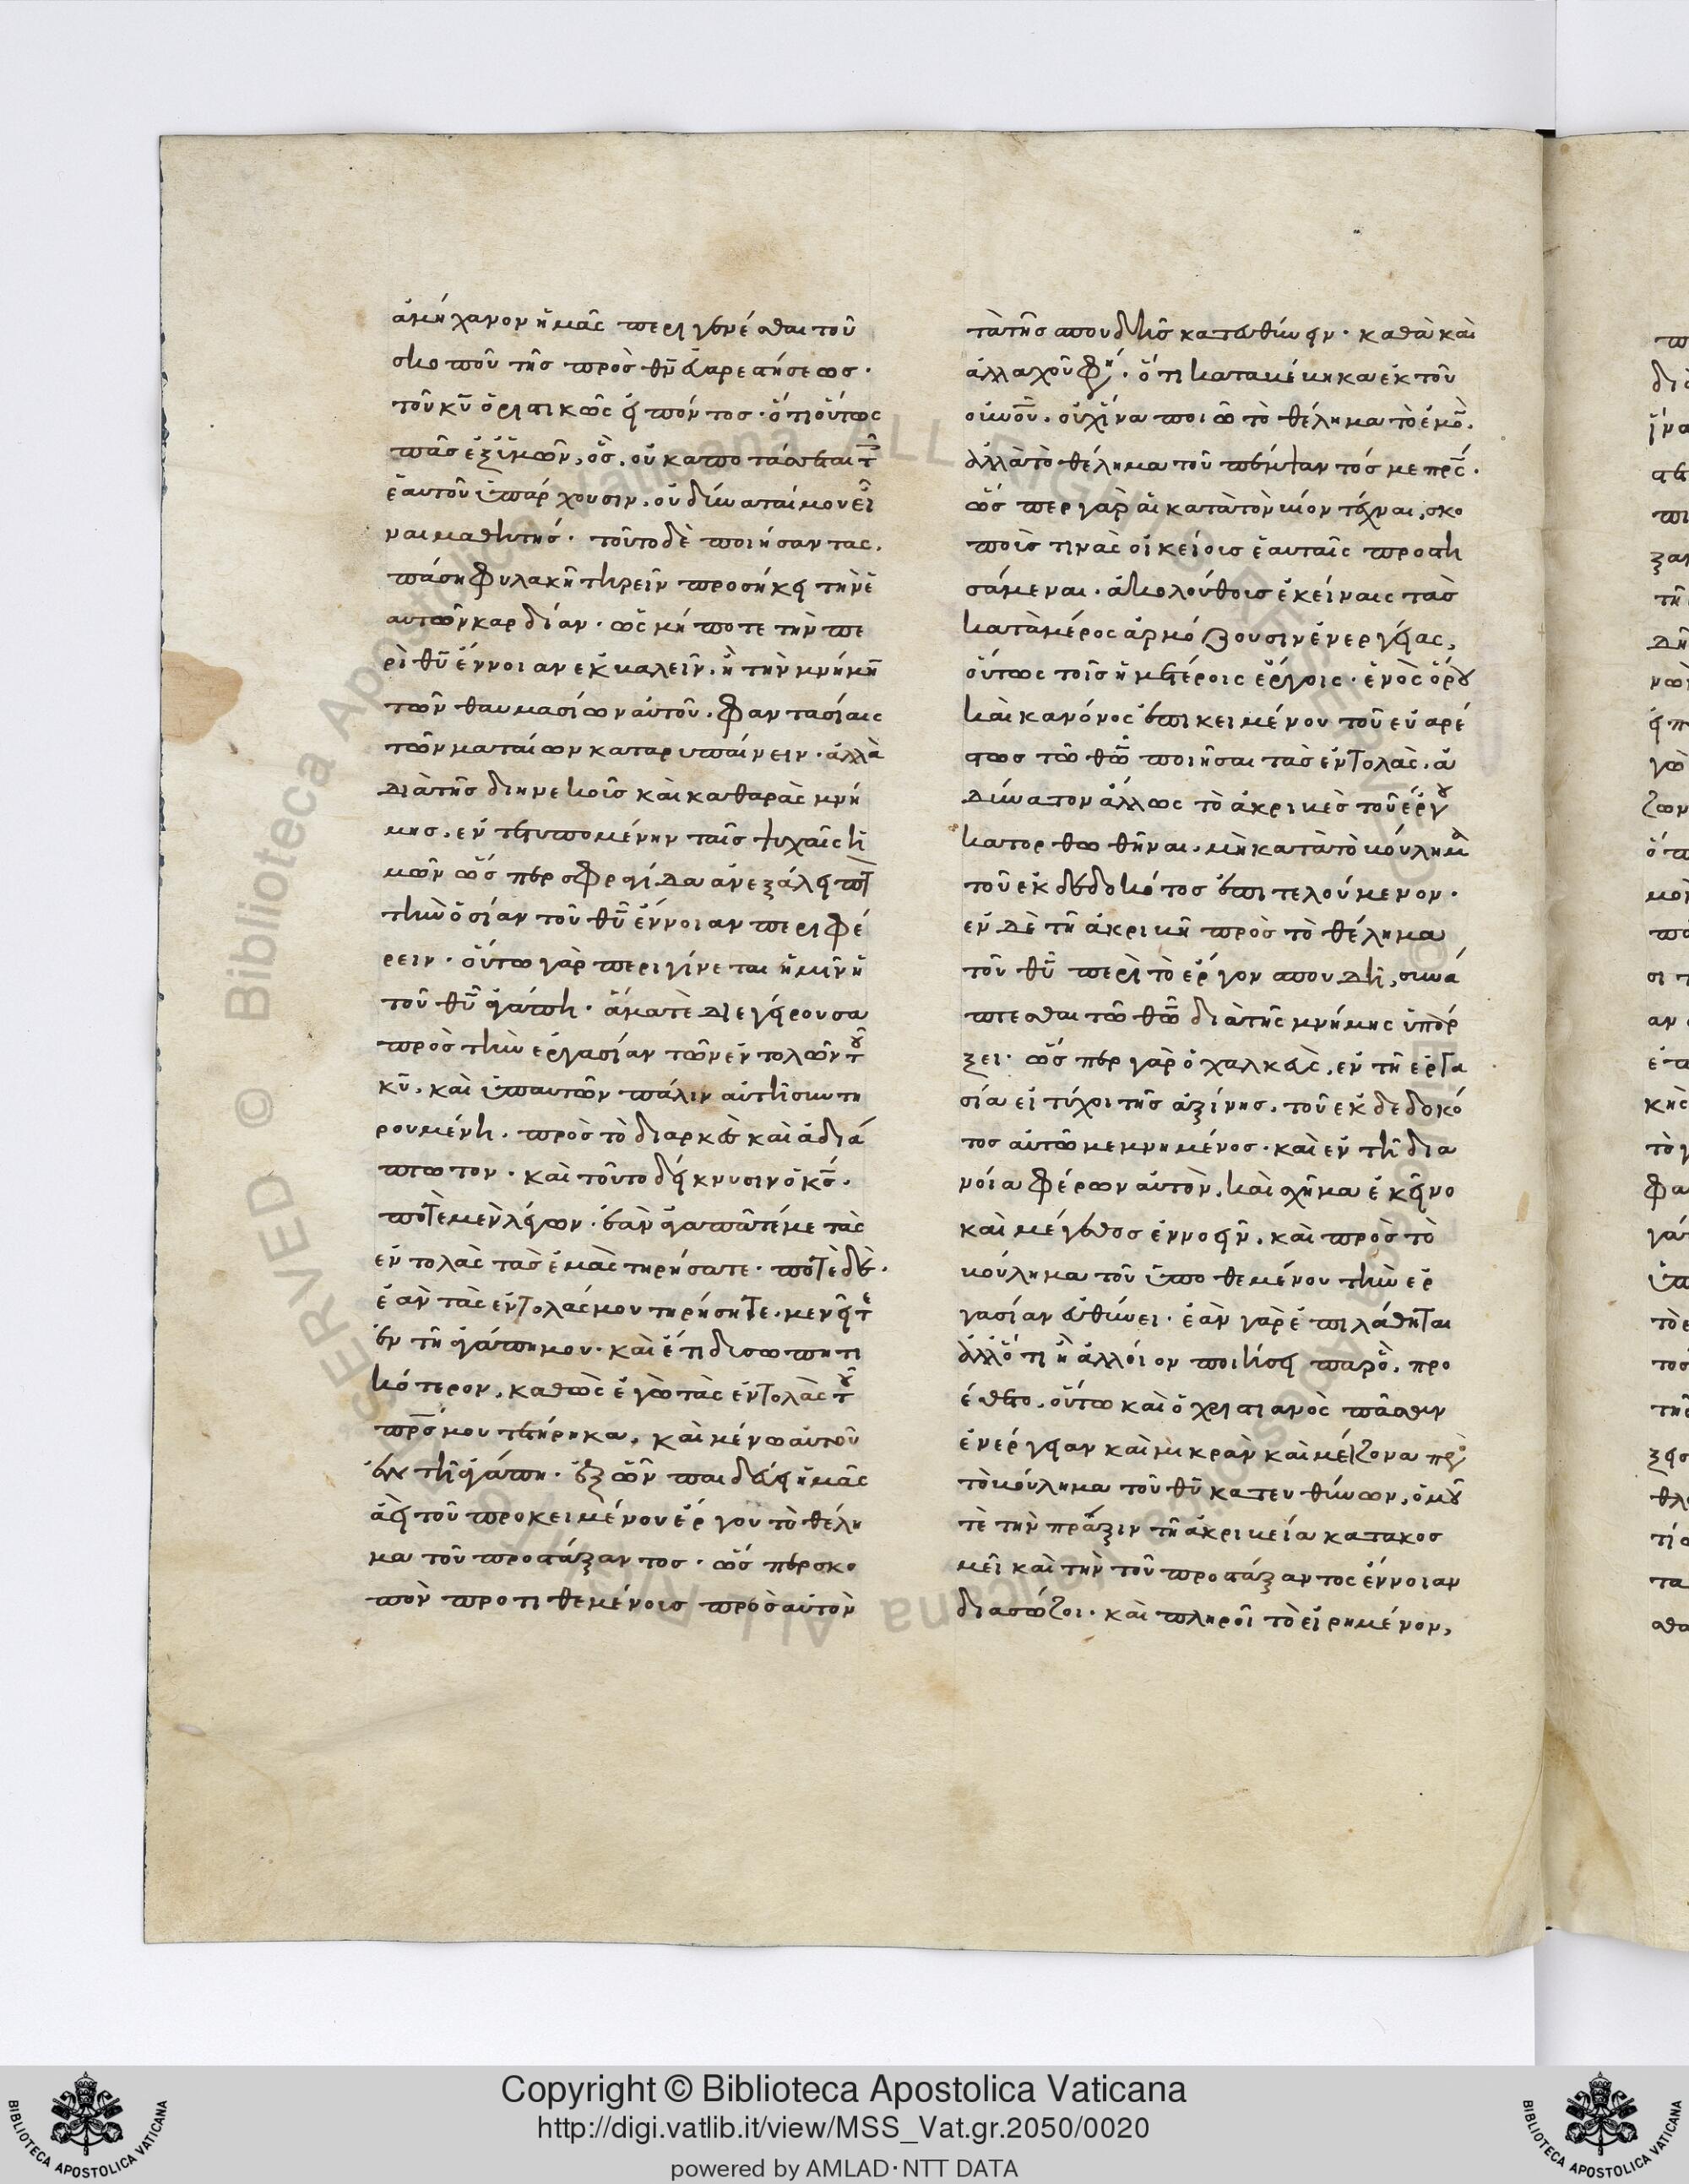 ἀμήχανον ἡμᾶς περιγενέσθαι τοῦ
σκοποῦ τῆς πρὸς θῦ εὐαρεστήσεως·
τοῦ κῦ ὁριστικῶς εἰπόντος· ὅτι οὕτως
πᾶς ἐξ ὑμῶν, ὃς οὐκ ἀποτάσσεται
ἑαυτοῦ ὑπάρχουσιν, οὐ δύναταί μου εἶ
ναι μαθητής· τοῦτο δὲ ποιήσαντας,
πάσῃ φυλακῇ τηρεῖν προσήκει τὴν ἑ
αυτῶν καρδίαν· ὡς μήποτε τὴν πε
ρὶ θῦ ἔννοιαν ἐκβαλεῖν, ἢ τὴν μνήμη
τῶν θαυμασίων αὐτοῦ, φαντασίαις
τῶν ματαίων καταρυπαίνειν· ἀλλὰ
διὰ τῆς διηνεκοῦς καὶ καθαρᾶς μνή
μης, ἐντετυπωμένην ταῖς ψυχαῖς ἡ
μῶν ὥσπερ σφραγίδα ἀνεξάλειπτ
τὴν ὁσίαν τοῦ θῦ ἔννοιαν περιφέ
ρειν· οὕτω γὰρ περιγίνεται ἡμῖν ἡ
τοῦ θῦ ἀγάπη· ἅμα τὲ διεγείρουσα
πρὸς τὴν ἐργασίαν τῶν ἐντολῶν τοῦ
κῦ, καὶ ὑπ αὐτῶν πάλιν αὐτὴ συντη
ρουμένη, πρὸς τὸ διαρκὲς καὶ ἀδιά
πτωτον· καὶ τοῦτο δείκνυσιν ὁ κς·
πότε μὲν λέγων· ἐὰν ἀγαπᾶτέ με τὰς
ἐντολὰς τὰς ἐμὰς τηρήσατε· πότε δὲ·
ἐὰν τὰς ἐντολάς μου τηρήσητε, μενεῖτε
ἐν τῇ ἀγάπῃ μου· καὶ ἔτι δυσωπητι
κότερον, καθὼς ἐγὼ τὰς ἐντολὰς τοῦ
πρς μου τετήρηκα, καὶ μένω αὐτοῦ
ἐν τῇ ἀγάπῃ· ἐξ ὧν παιδεύει ἡμᾶς
ἀεὶ τοῦ προκειμένου ἔργου τὸ θέλη
μα τοῦ προστάξαντος· ὥσπερ σκο
πὸν προτιθεμένοις πρὸς αὐτὸν
τὰ τῆς σπουδῆς κατευθύνειν· καθὰ καὶ
ἀλλαχοῦ φη· ὅτι καταβέβηκα ἐκ τοῦ
οὐνοῦ· οὐχ ἵνα ποιῶ τὸ θέλημα τὸ ἐμὸ,
ἀλλὰ τὸ θέλημα τοῦ πέμψαντός με πρς·
ὥσπερ γὰρ αἱ κατὰ τὸν βίον τέχναι, σκο
πούς τινας οἰκείους ἑαυταῖς προστη
σάμεναι, ἀκολούθους ἐκείναις τὰς
κατὰ μέρος ἁρμόζουσιν ἐνεργείας,
οὕτως τοῖς ἡμετέροις ἔργοις, ἑνὸς ὅρου
καὶ κανόνος ἐπικειμένου τοῦ εὐαρέ
στως τῶ θῶ ποιῆσαι τὰς ἐντολὰς, ἀ
δύνατον ἄλλως τὸ ἀκριβὲς τοῦ ἔργου
κατορθωθῆναι, μὴ κατὰ τὸ βούλημα
τοῦ ἐκδεδωκότος ἐπιτελούμενον·
ἐν δὲ τῇ ἀκριβῇ πρὸς τὸ θέλημα
τοῦ θῦ περὶ τὸ ἔργον σπουδῇ, συνά
πτεσθαι τῶ θῶ διὰ τῆς μνήμης ὑπάρ
ξει· ὥσπερ γὰρ ὁ χαλκεὺς, ἐν τῇ ἐργα
σία εἰ τύχοι τῆς ἀξίνης, τοῦ ἐκδεδοκό
τος αὐτῶ μεμνημένος· καὶ ἐν τῇ δια
νοία φέρων αὐτὸν, καὶ σχῆμα ἐκεῖνο
καὶ μέγεθος ἐννοεῖν, καὶ πρὸς τὸ
βούλημα τοῦ ὑποθεμένου τὴν ἐρ
γασίαν εὐθύνει· ἐὰν γὰρ ἐπιλάθηται
ἄλλό τι ἢ ἀλλοῖον ποιήσει παρ ὃ, προ
έθετο, οὕτω καὶ ὁ χριστιανὸς πᾶσαν
ἐνέργειαν καὶ μικρὰν καὶ μείζονα πρὸς
τὸ βούλημα τοῦ θῦ κατευθύνων, ὁμοῦ
τε τὴν πρᾶξιν τῇ ἀκριβεία κατακοσ
μεῖ καὶ τὴν τοῦ προστάξαντος ἔννοιαν
διασώζοι· καὶ πληροῖ τὸ εἰρημένον,
Copyright © Biblioteca Apostolica Vaticana
http://digi.vatlib.it/view/MSS_Vat.gr.2050/0020
powered by AMLAD·NTT DATA